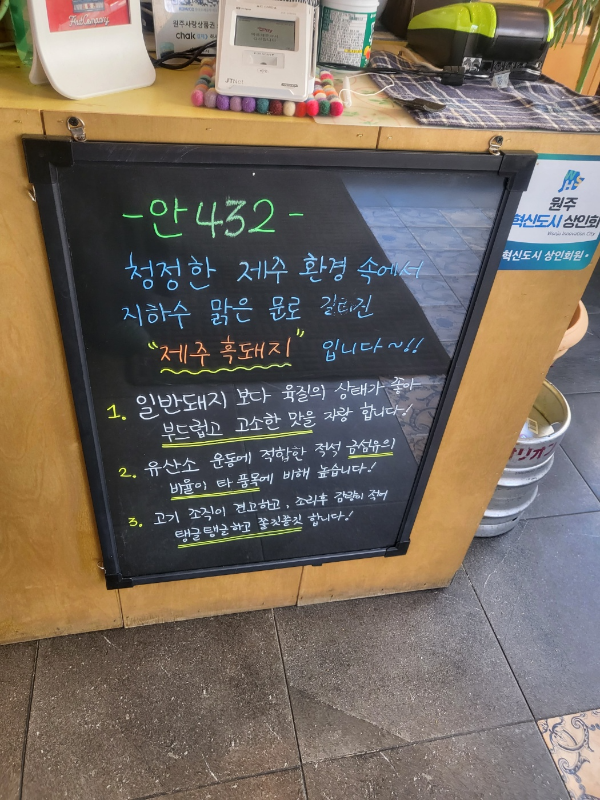 원주사랑상품권
chak
원주
혁신도시 상인회
Wonju Innovation City
혁신도시 상인회원
- 안 432 -
청정한 제주 환경 속에서
지하수 맑은 물로 길러진
"제주 흑돼지" 입니다~!!
1. 일반돼지 보다 육질의 상태가 좋아
부드럽고 고소한 맛을 자랑 합니다!
2. 유산소 운동에 적합한 적석 근섬유의
비율이 타 품목에 비해 높습니다!
3. 고기 조직이 견고하고, 조리후 감량이 적어
탱글탱글하고 쫄깃쫄깃 합니다!